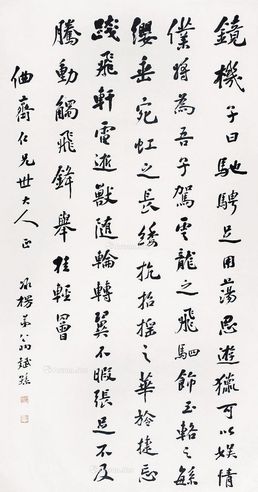 鏡機子曰馳騁足用蕩思遊獵可以娛情
僕將為吾子駕雲龍之飛駟飾玉輅之緐
纓垂宛虹之長緌抗招搖之華旍捷忘
踐飛軒電逝獸隨輪轉翼不暇張足不及
騰動觸飛鋒舉挂輕罾
齋仁兄世大人正
弟翁斌孫